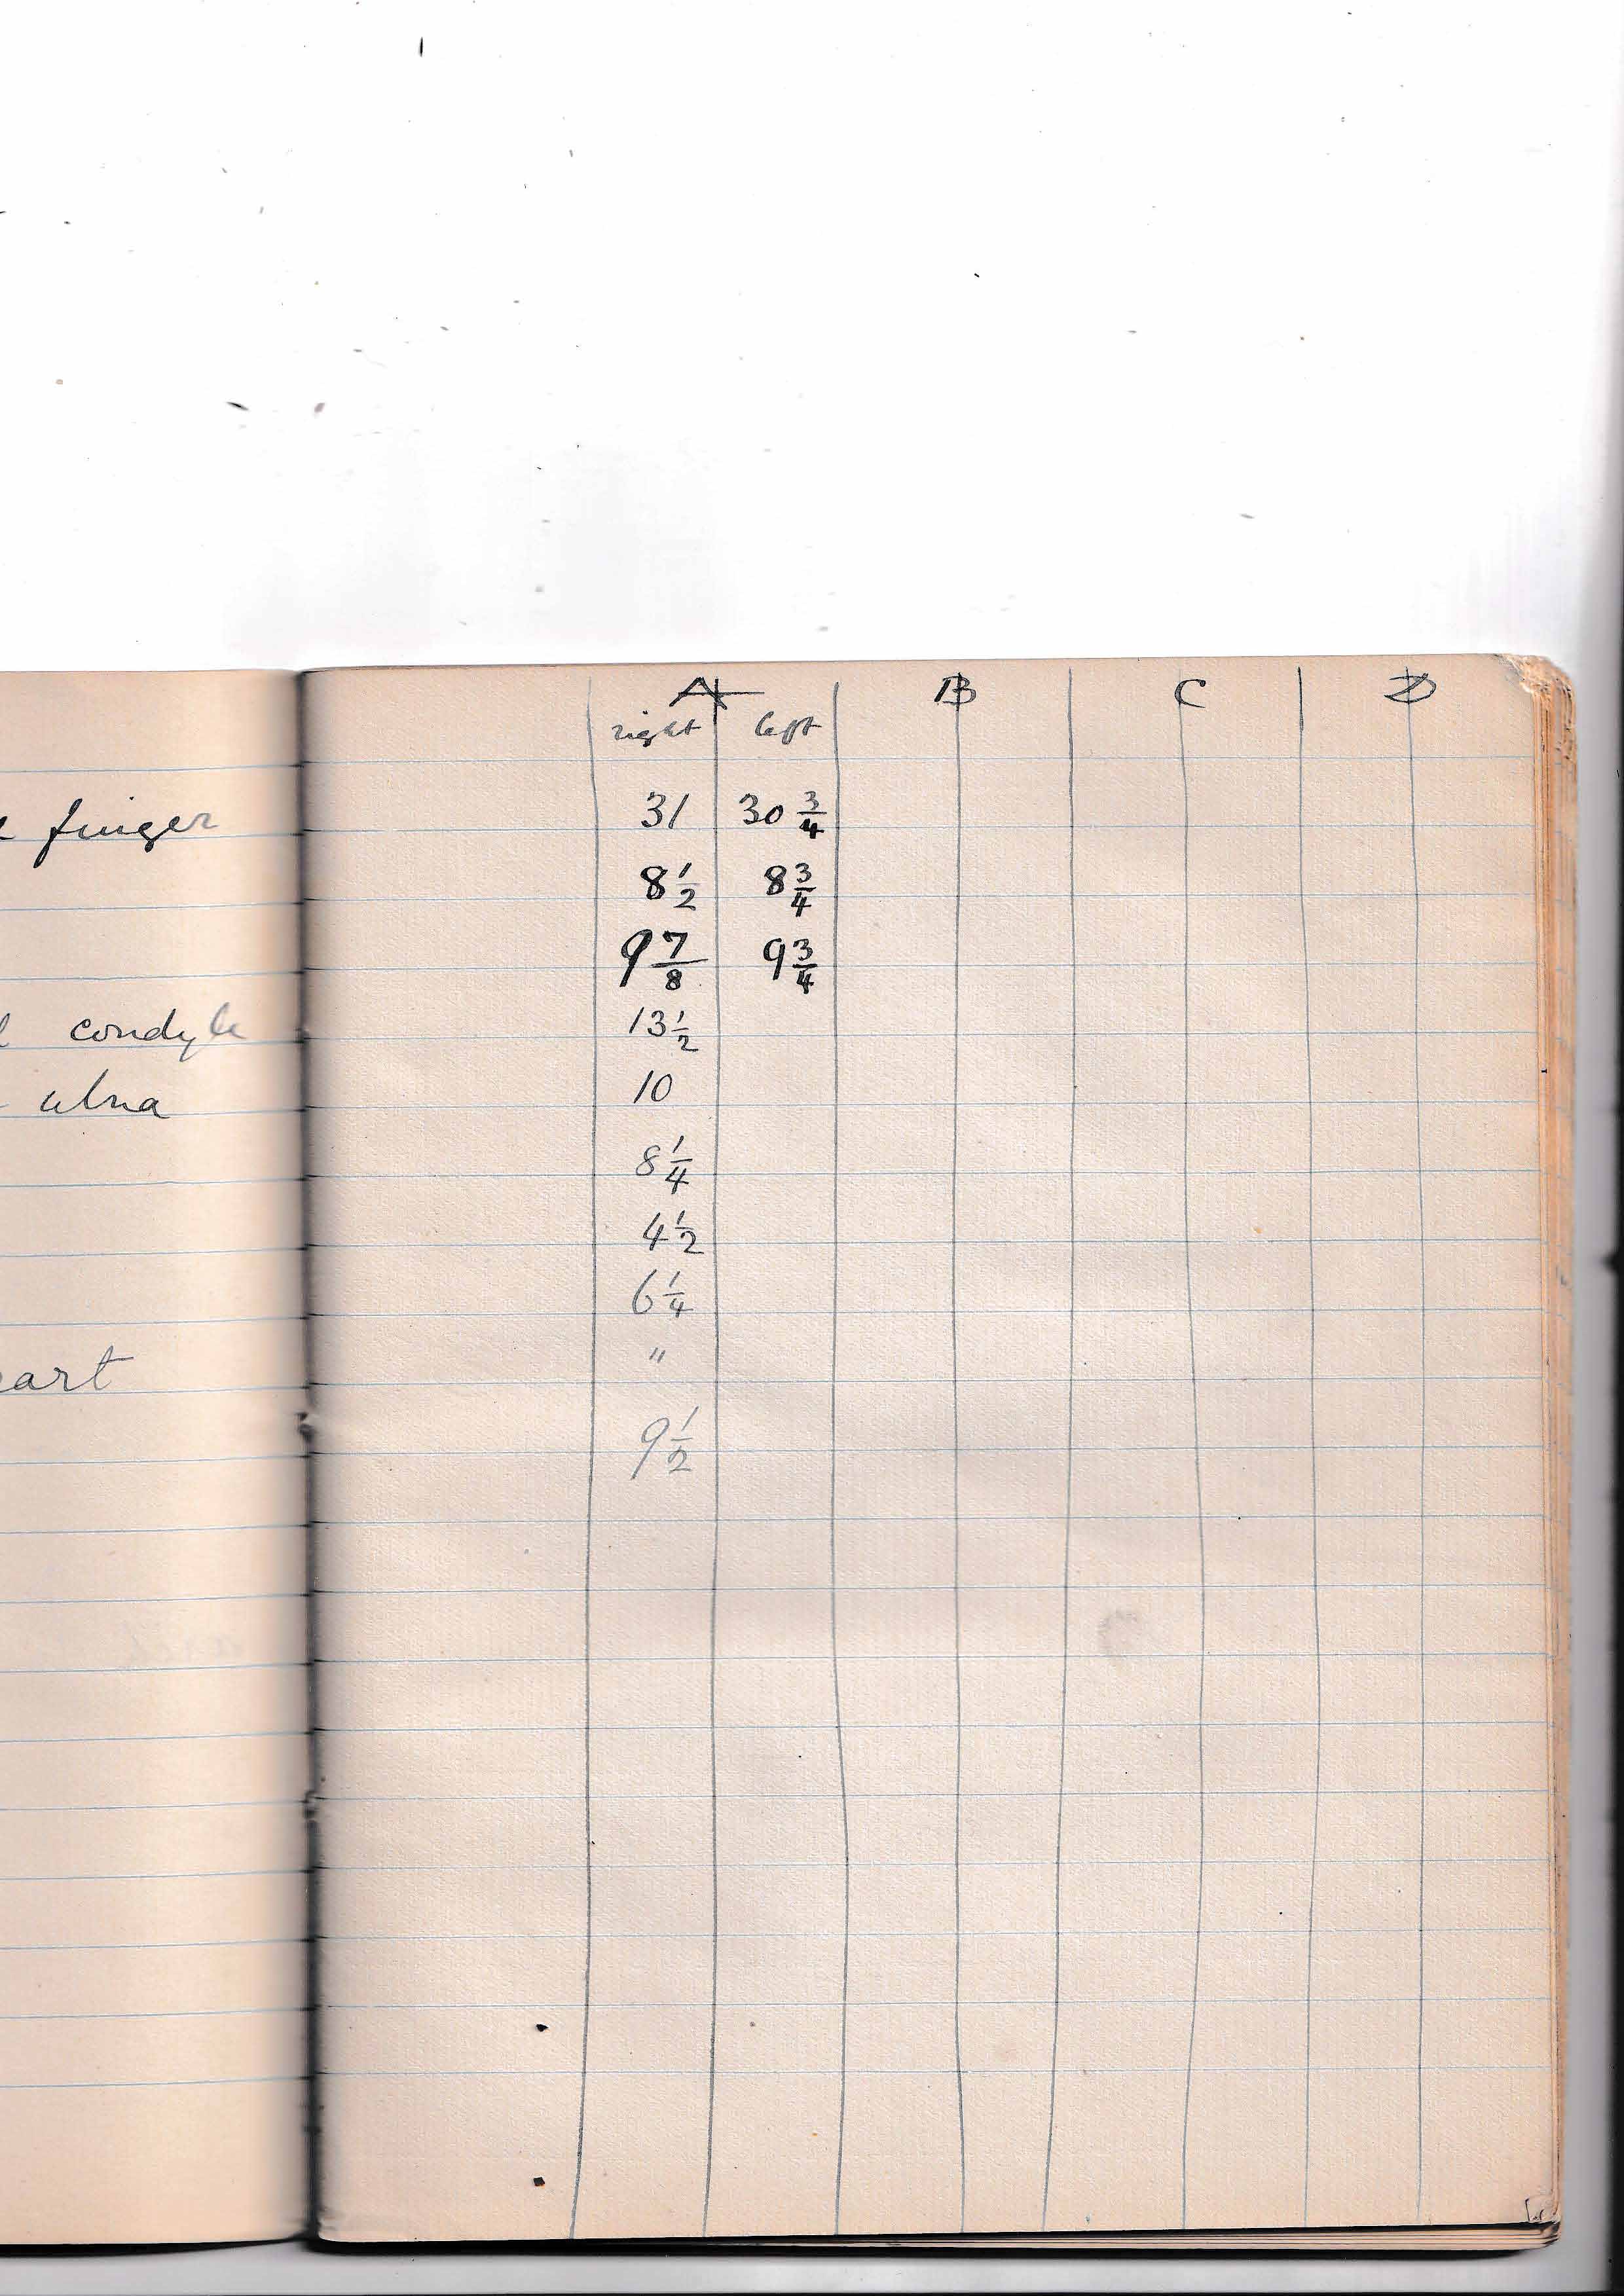 finger
condyle
ulna
art
A B C D
right left
31 30 3/4
8 1/2 8 3/4
9 7/8 9 3/4
13 1/2
10
8 1/4
4 1/2
6 1/4
"
9 1/2